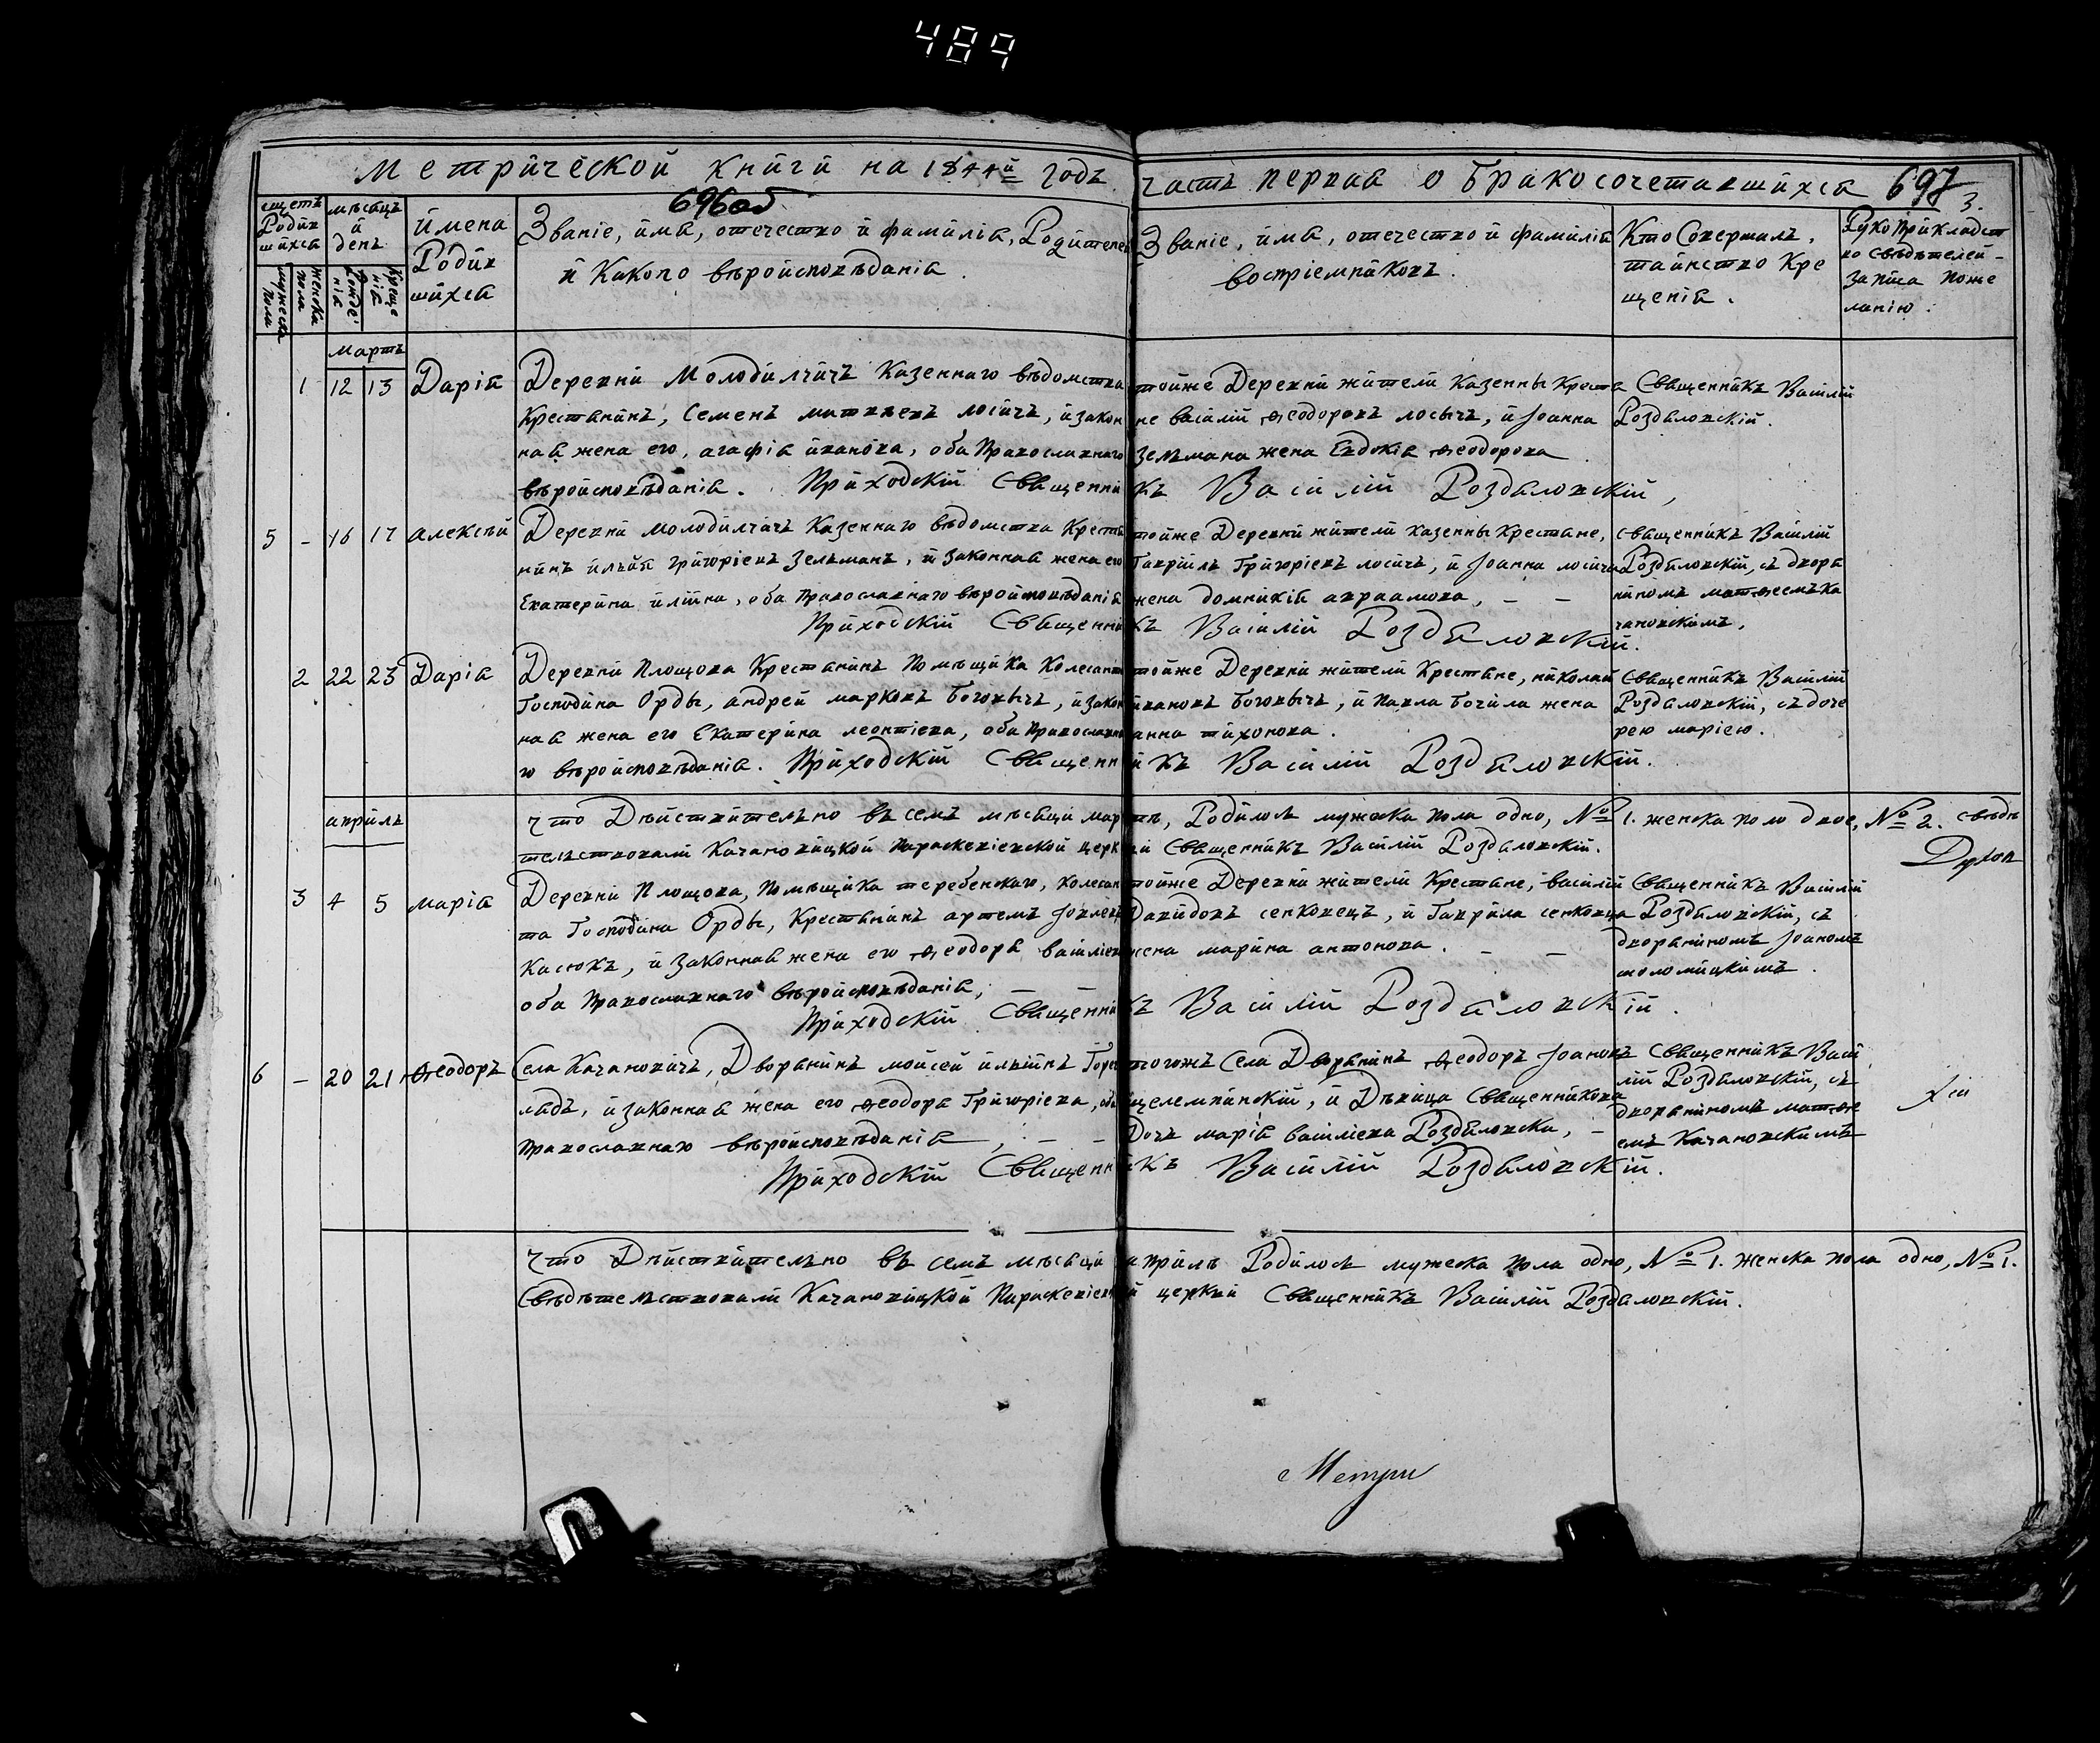 489
Метрической книги на 1844й годъ часть первая о Бракосочетавшихся 697
696об
3.
счетъ Родив шихся
мужеска пола
женска пола
мѣсяцъ и день
Рожде: нія
Креще нія
имена Родив шихся
Званіе, имя, отечество и фамилія, Родителей
и Какого вѣроисповѣданія.
Званіе, имя, отечество и фамилія
воспріемниковъ.
Кто Совершалъ,
таинство Кре
щенія.
Рукоприкладст
во свѣдѣтелей
записа поже
ланію.
Мартъ
1 12 13 Дарія
Деревни Молодилчичъ Казеннаго вѣдомства
Крестянинъ, Семенъ матвѣевъ лосичъ, и закон
ная жена его, агафія иванова, оба Православнаго
вѣроисповѣданія. Приходскій Священникъ Василій Роздяловскій,
тойже Деревни жители Казенны Крестя
не василій Ѳеодоровъ лосычъ, и Іоанна
Зелмана жена Евдокія Ѳеодорова
Священникъ Василій
Роздяловскій.
5 – 16 17 алексѣй
Деревни молодилчичъ Казеннаго вѣдомства Крестя
нинъ илья григоріевъ Зельманъ, и законная жена его
Екатерина иліина, оба Православнаго вѣроисповѣданія
Приходскій Священникъ Василій Роздяловскій.
тойже Деревни жители казенны Крестяне,
Гаврііль Григоріевъ лосичъ, и Іоанна лосича
жена домникія авраамова, – –
священникъ Василій
Роздяловскій, съ дворя
ниномъ матѳеемъ Ка
чановскимъ,
2 22 23 Дарія
Деревни Площова Крестянинъ Помѣщика Колесант
Господина Орды, андрей марковъ Боговичъ, и закон
ная жена его Екатерина леонтіева, оба Православна
го вѣроисповѣданія. Приходскій Священникъ Василій Роздяловскій.
тойже Деревни жители Крестяне, николай
ивановъ Боговычъ, и Павла Бочила жена
анна тихонова.
Священникъ Василій
Роздяловскій, съ доче
рею маріею.
апрѣль
что Дѣйствительно въ семъ мѣсяци мартъ, Родилось мужеска пола одно, № 1. женска поло двое, № 2. свѣдѣ
тельствовали Качановицкой Параскевіевской церкви Священникъ Василій Роздяловскій.
3 4 5 марія
Деревни Площова, Помѣщика теребенскаго, колесан
та Господина Орды, Крестянинъ артемъ Іовлевъ
Касюкъ, и законная жена его Ѳеодора василіева
оба Православнаго вѣроисповѣданія, – –
Приходскій Священникъ Василій Роздяловскій.
тойже Деревни жители Крестяне, василій
Давидовъ сенковецъ, и Гаврила сенковца
жена марина антонова. – –
Священникъ Василій
Роздяловскій, съ
дворяниномъ Іоаномъ
6 – 20 21 Ѳеодоръ
Села Качановичъ, Дворянинъ мойсей ильинъ Горе
ладъ, и законная жена его Ѳеодора Григоріева, оба
Православнаго вѣроисповѣданія, – –
Приходскій Священникъ Василій Роздяловскій.
тогожъ Села Дворянинъ Ѳеодоръ Іоановъ
щелемпинскій, и Дѣвица Священникова
Дочъ марія василіева Роздяловска, –
священникъ Васи
лій Роздяловскій, съ
дворяниномъ матѳе
емъ Качановскимъ
что Дѣйствительно въ семъ мѣсяци априлъ Родилось мужеска пола одно, № 1. женска пола одно, № 1.
Свѣдѣтельствовали Качановицкой Параскевіевской церкви Священникъ Василій Роздяловскій.
Метри